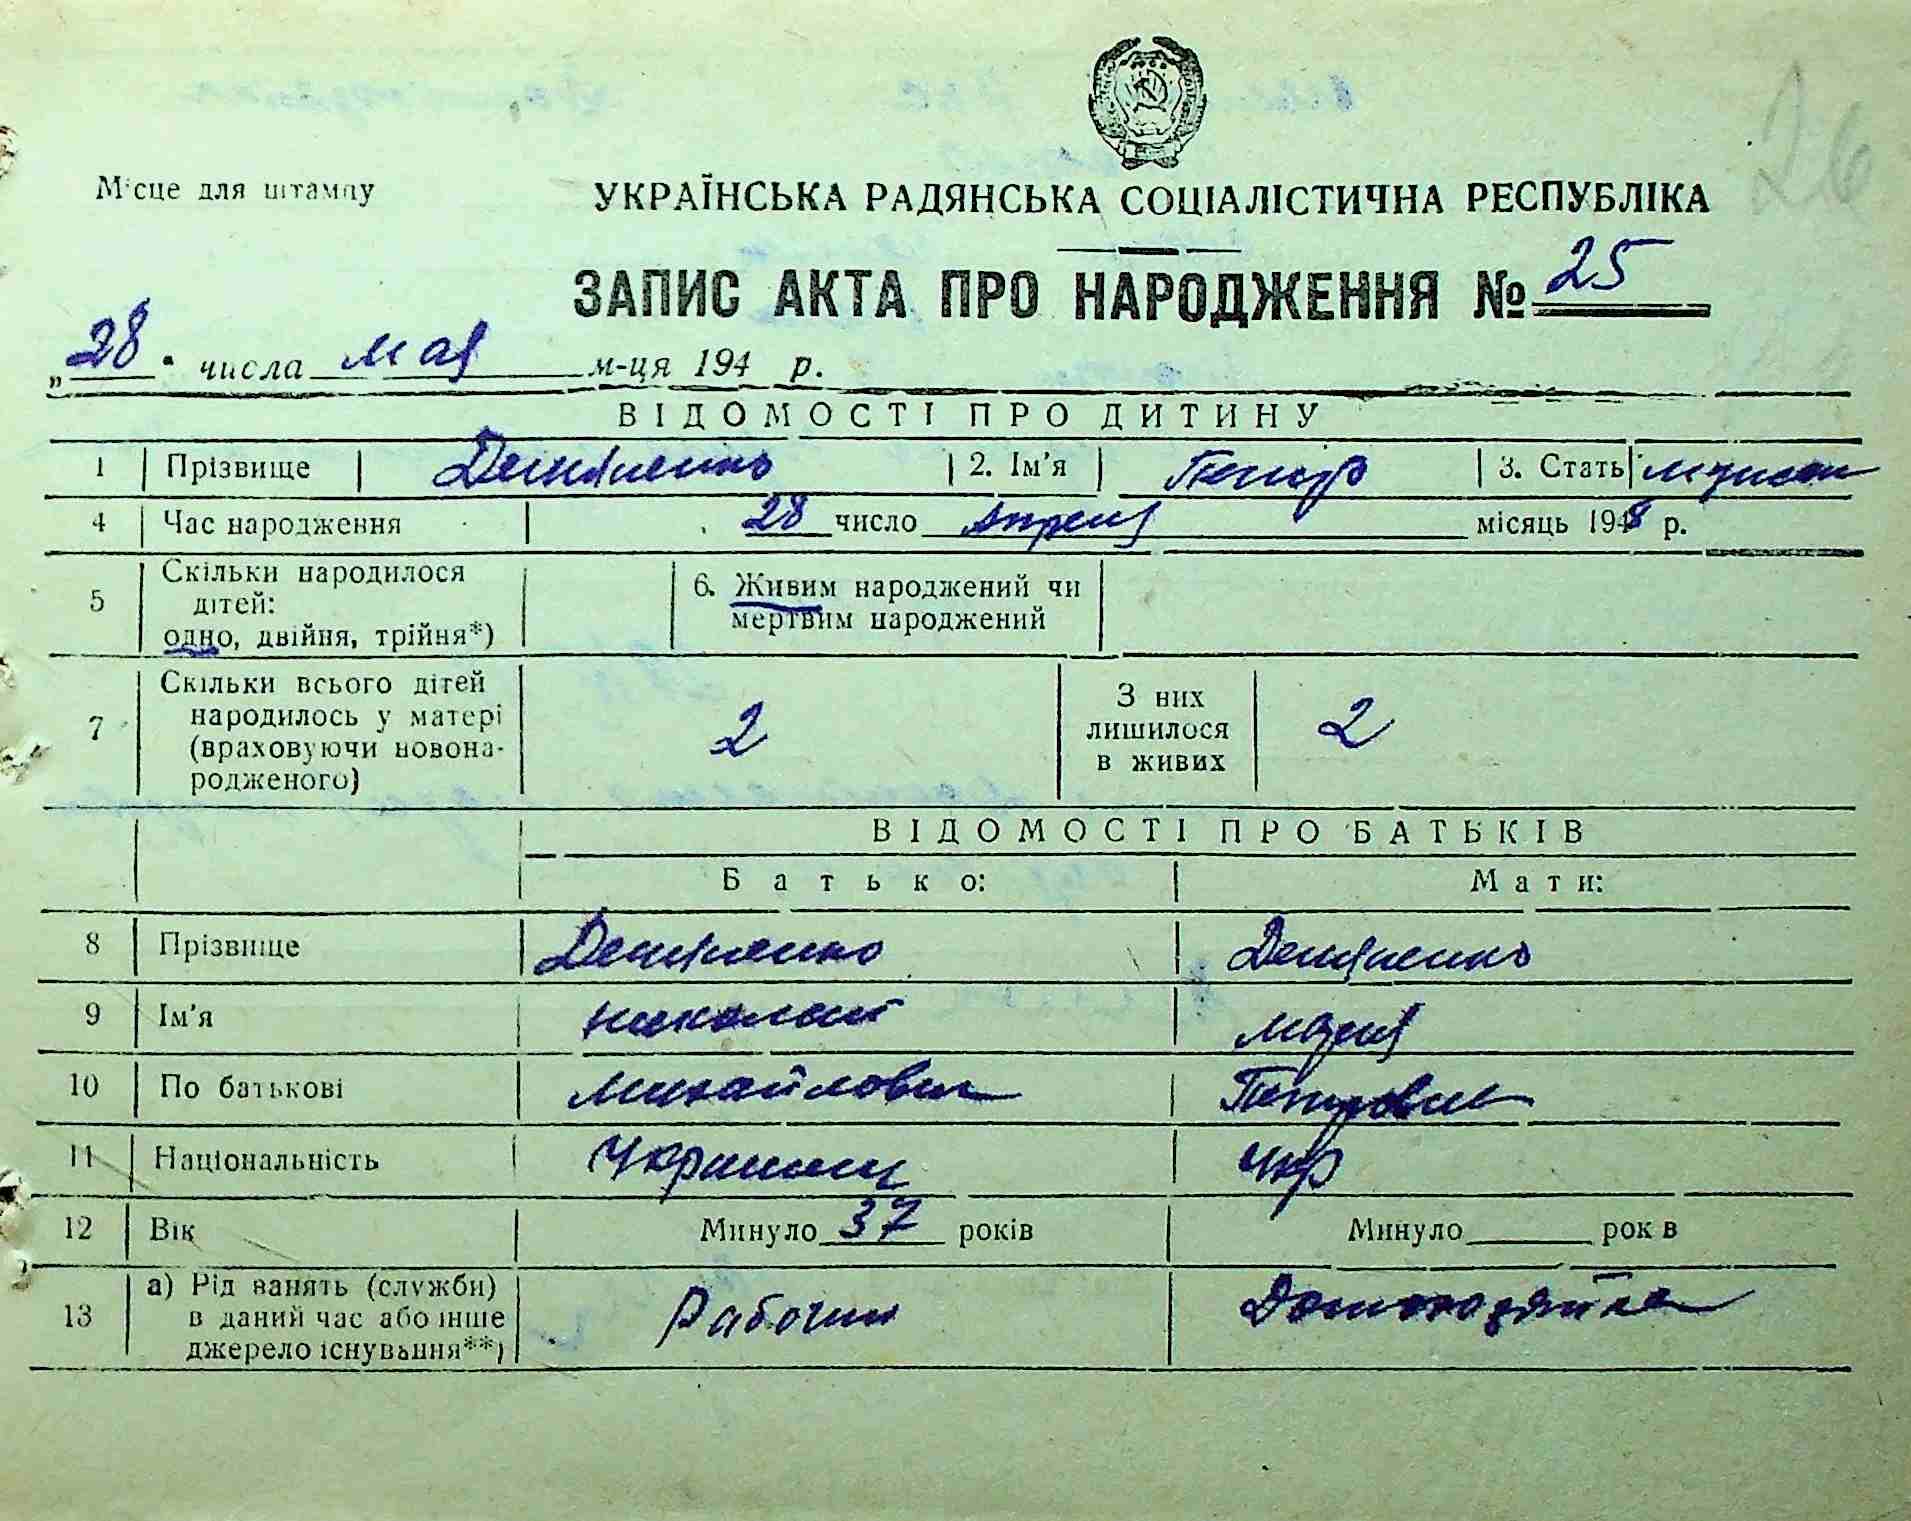 26
Місце для штампу
УКРАЇНСЬКА РАДЯНСЬКА СОЦІАЛІСТИЧНА РЕСПУБЛІКА
ЗАПИС АКТА ПРО НАРОДЖЕННЯ № 25
„28" числа мая м-ця 194 р.
ВІДОМОСТІ ПРО ДИТИНУ
1 Прізвище Демяненко 2. Ім'я Петр 3. Стать мужской
4 Час народження 28 число апреля місяць 1948 р.
5 Скільки народилося дітей: одно, двійня, трійня*) 6. Живим народжений чи мертвим народжений
7 Скільки всього дітей народилось у матері (враховуючи новонародженого) 2 З них лишилося в живих 2
ВІДОМОСТІ ПРО БАТЬКІВ
Батько: Мати:
8 Прізвище Демяненко Демяненко
9 Ім'я николай мария
10 По батькові михайлович Петровна
11 Національність Украинец Укр
12 Вік Минуло 37 років Минуло рок в
13 а) Рід занять (служби) в даний час або інше джерело існування**) Рабочий Домохозяйка